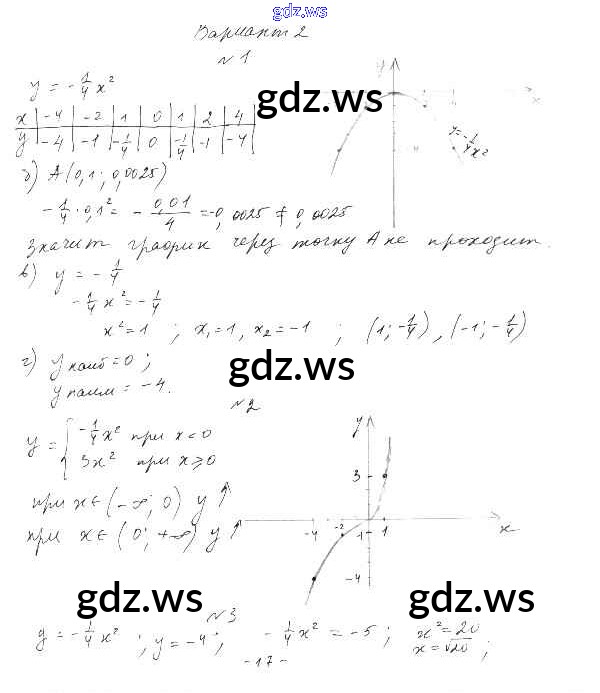 gdz.ws
Вариант 2
№ 1
y = -1/4 x²
x | -4 | -2 | 1 | 0 | 1 | 2 | 4 |
y | -4 | -1 | -1/4 | 0 | -1/4 | -1 | -4 |
y
x
y = -1/4 x²
gdz.ws
б) A(0,1; 0,0025)
-1/4 · 0,1² = -0,01/4 = -0,0025 ≠ 0,0025
Значит график через точку A не проходит.
в) y = -1/4
-1/4 x² = -1/4
x² = 1 ; x₁ = 1, x₂ = -1 ; (1; -1/4), (-1; -1/4)
г) y наиб = 0 ;
y наим = -4.
gdz.ws
№ 2
y = { -1/4 x² при x < 0
3x² при x ≥ 0
при x ∈ (-∞; 0) y ↑
при x ∈ (0; +∞) y ↑
y
3
-4 -2 -1 1 x
-4
gdz.ws gdz.ws
№ 3
y = -1/4 x² ; y = -4 ; -1/4 x² = -5 ; x² = 20
x = √20 ;
-17-